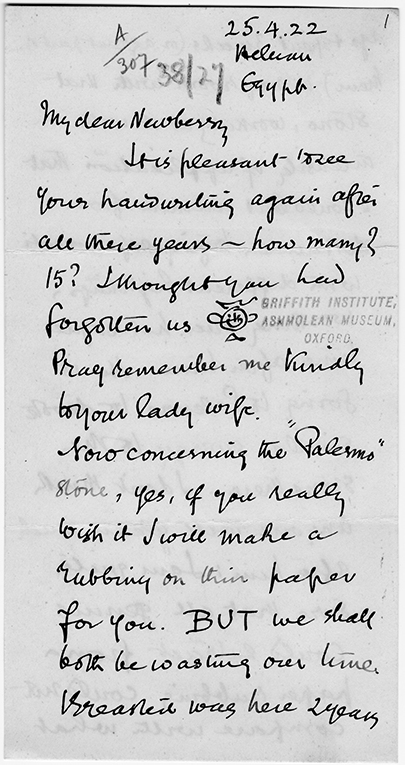 1
A/307
38/27
25.4.22
Helwan
Egypt.
My dear Newberry
It is pleasant to see
your handwriting again after
all these years – how many?
15? I thought you had
forgotten us
GRIFFITH INSTITUTE,
ASHMOLEAN MUSEUM,
OXFORD.
Pray remember me kindly
to your lady wife.
Now concerning the "Palermo"
stone, yes, if you really
wish it I will make a
rubbing on thin paper
for you. BUT we shall
both be wasting our time.
Breasted was here 2 years